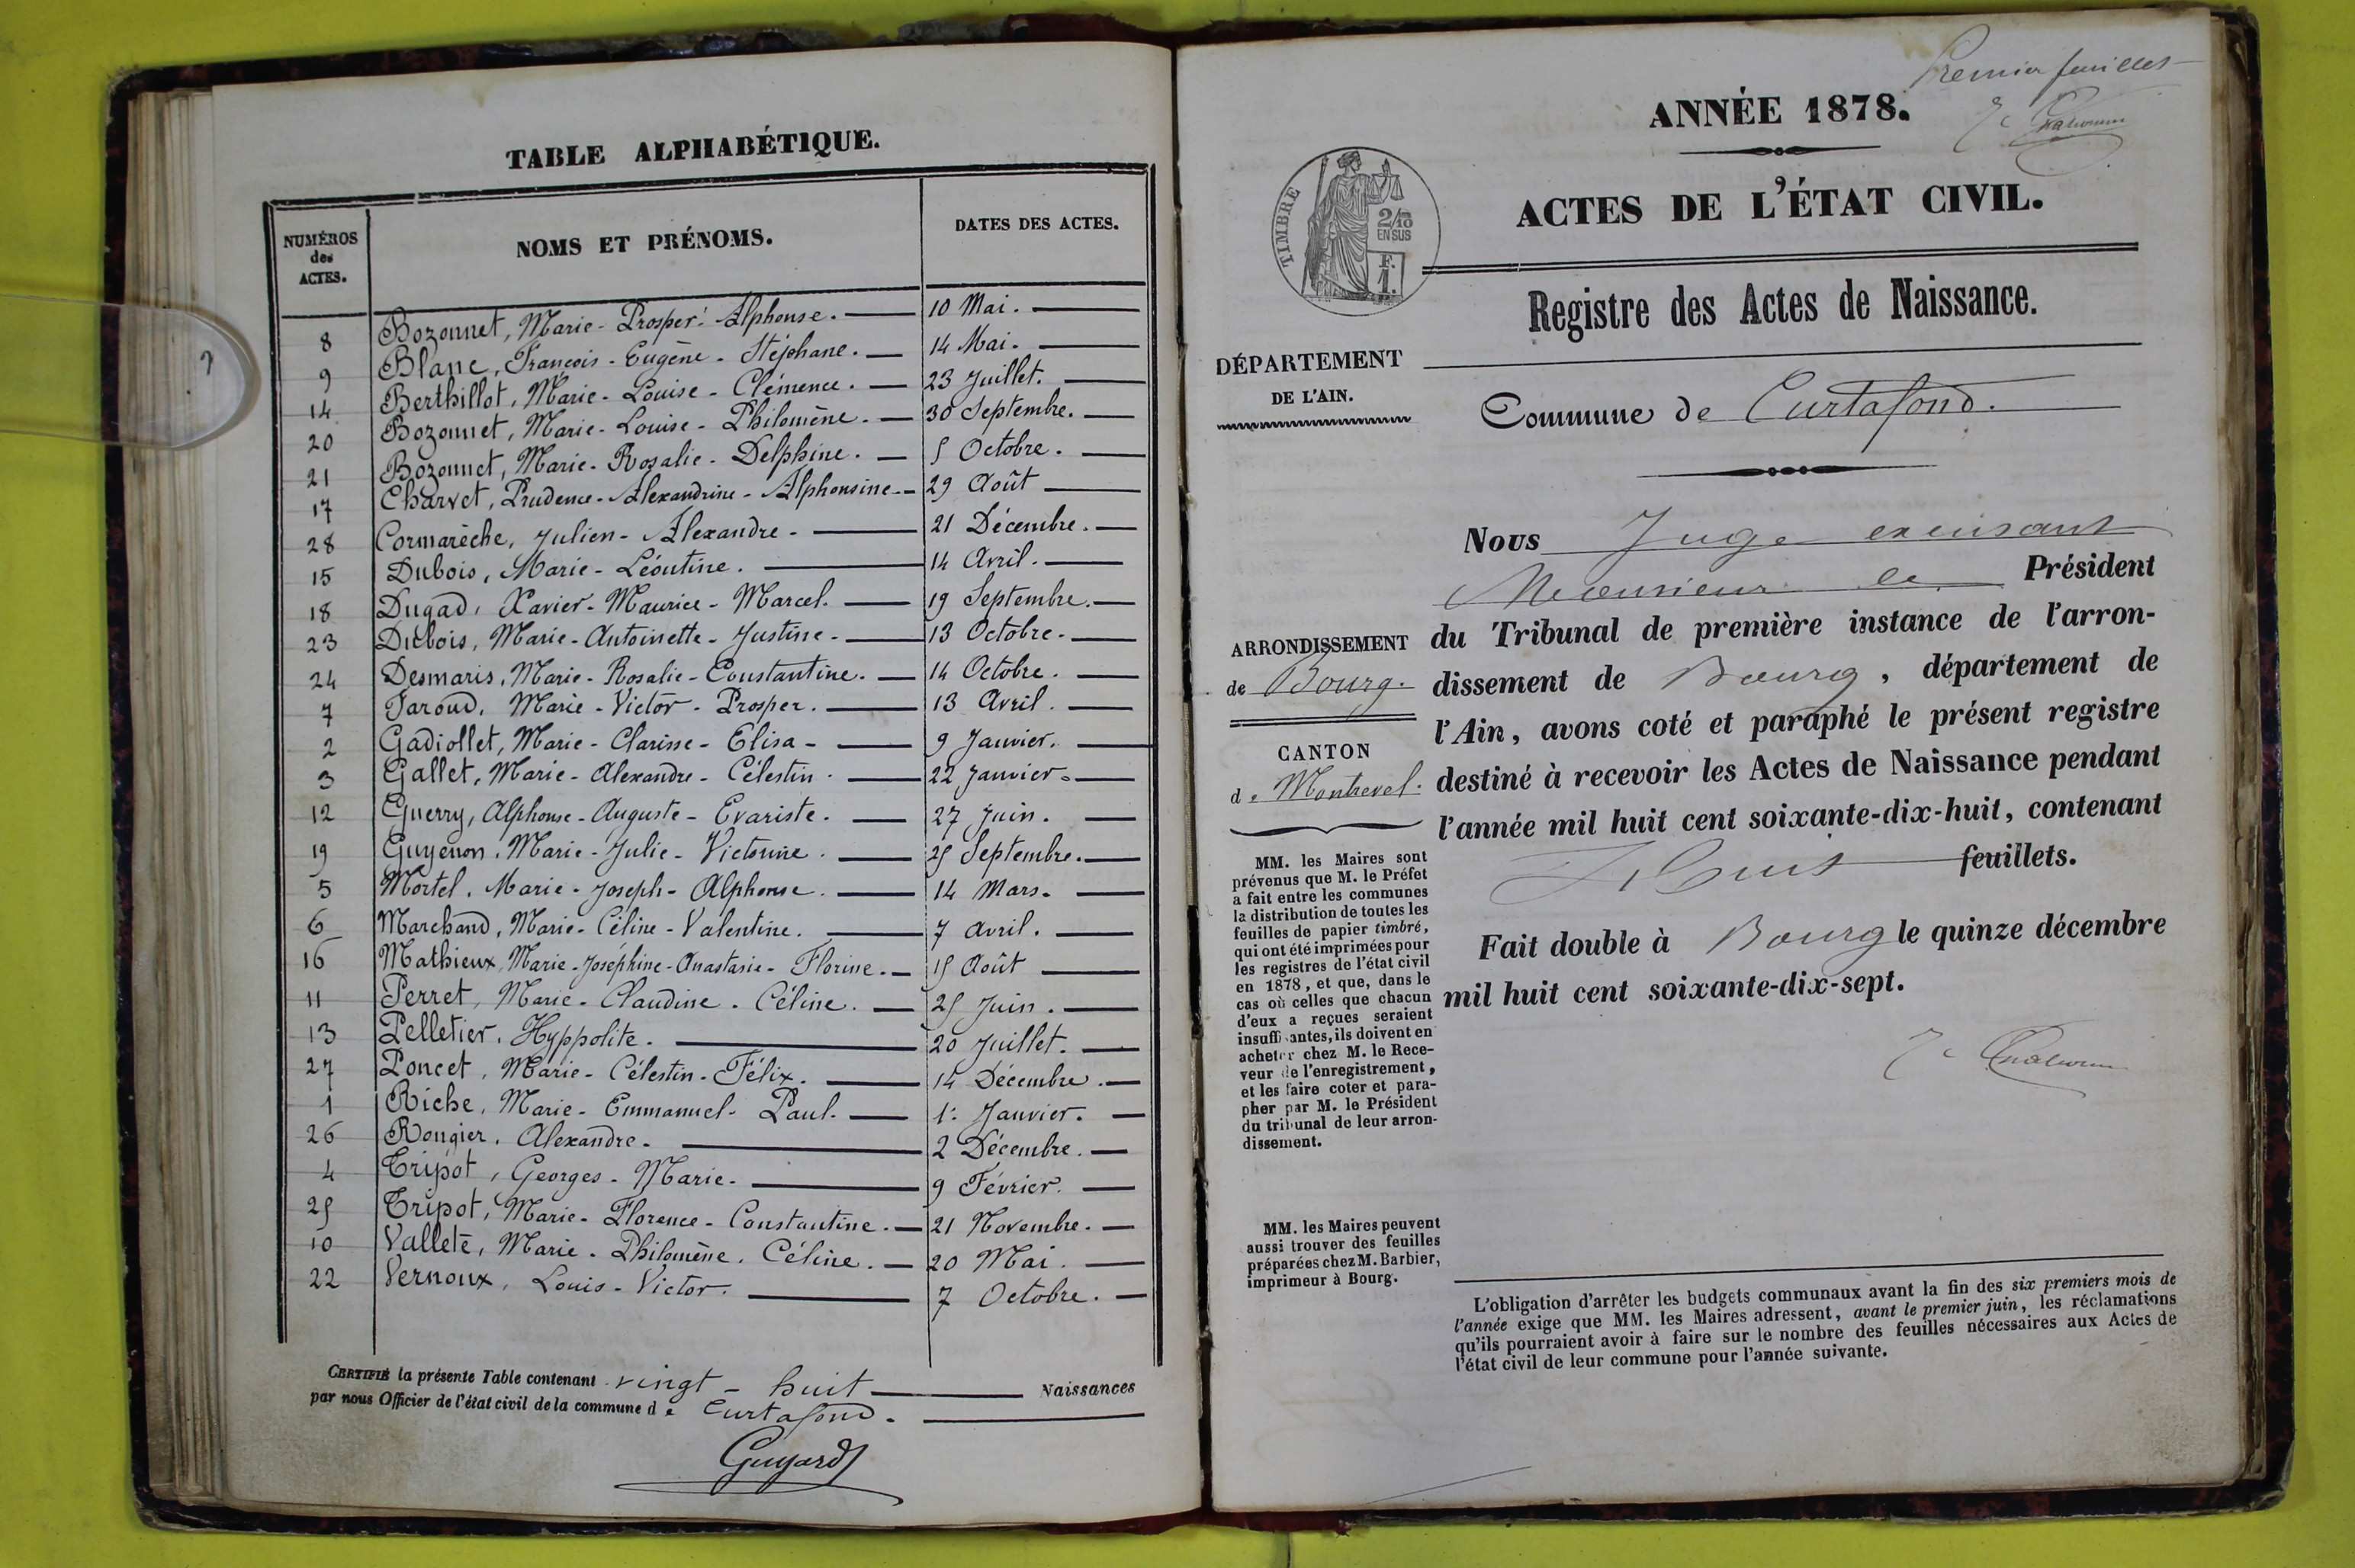 TABLE ALPHABÉTIQUE.
NUMÉROS des ACTES. NOMS ET PRÉNOMS. DATES DES ACTES.
8 Bozonnet, Marie-Prosper-Alphonse. 10 Mai.
9 Blanc, François-Eugène-Stéphane. 14 Mai.
14 Berthillot, Marie-Louise-Clémence. 23 Juillet.
20 Bozonnet, Marie-Louise-Philomène. 30 Septembre.
21 Bozonnet, Marie-Rosalie-Delphine. 5 Octobre.
17 Charvet, Prudence-Alexandrine-Alphonsine 29 Août
28 Cormarèche, Julien-Alexandre 21 Décembre.
15 Dubois, Marie-Léontine. 14 Avril.
18 Dugad, Xavier-Maurice-Marcel. 19 Septembre.
23 Dubois, Marie-Antoinette-Justine 13 Octobre.
24 Desmaris, Marie-Rosalie-Constantine. 14 Octobre.
7 Faroud, Marie-Victor-Prosper. 13 Avril.
2 Gadiollet, Marie-Clarisse-Elisa 9 Janvier.
3 Gallet, Marie-Alexandre-Célestin. 22 Janvier.
12 Guerry, Alphonse-Auguste-Evariste. 27 Juin.
19 Guyenon, Marie-Julie-Victorine. 25 Septembre.
5 Mortel, Marie-Joseph-Alphonse. 14 Mars.
6 Marchand, Marie-Céline-Valentine. 7 Avril.
16 Mathieux, Marie-Joséphine-Anastasie-Florine. 15 Août
11 Perret, Marie-Claudine-Céline. 25 Juin.
13 Pelletier, Hyppolite. 20 Juillet.
27 Poncet, Marie-Célestin-Félix. 14 Décembre.
1 Riche, Marie-Emmanuel-Paul. 1er Janvier.
26 Rougier, Alexandre. 2 Décembre.
4 Tripot, Georges-Marie. 9 Février.
25 Tripot, Marie-Florence-Constantine. 21 Novembre.
10 Vallete, Marie-Philomène-Céline. 20 Mai.
22 Vernoux, Louis-Victor. 7 Octobre.
CERTIFIÉ la présente Table contenant vingt-huit Naissances
par nous Officier de l'état civil de la commune de Curtafond.
Guyard
Premier feuillet
ANNÉE 1878.
ACTES DE L'ÉTAT CIVIL.
TIMBRE
2/10
EN SUS
F.
1.
Registre des Actes de Naissance.
DÉPARTEMENT
DE L'AIN.
Commune de Curtafond.
Nous Juge
Monsieur le Président
du Tribunal de première instance de l'arron-
dissement de Bourg, département de
l'Ain, avons coté et paraphé le présent registre
destiné à recevoir les Actes de Naissance pendant
l'année mil huit cent soixante-dix-huit, contenant
feuillets.
Fait double à Bourg le quinze décembre
mil huit cent soixante-dix-sept.
ARRONDISSEMENT
de Bourg.
CANTON
de Montrevel.
MM. les Maires sont
prévenus que M. le Préfet
a fait entre les communes
la distribution de toutes les
feuilles de papier timbré,
qui ont été imprimées pour
les registres de l'état civil
en 1878, et que, dans le
cas où celles que chacun
d'eux a reçues seraient
insuffisantes, ils doivent en
acheter chez M. le Rece-
veur de l'enregistrement,
et les faire coter et para-
pher par M. le Président
du tribunal de leur arron-
dissement.
MM. les Maires peuvent
aussi trouver des feuilles
préparées chez M. Barbier,
imprimeur à Bourg.
L'obligation d'arrêter les budgets communaux avant la fin des six premiers mois de
l'année exige que MM. les Maires adressent, avant le premier juin, les réclamations
qu'ils pourraient avoir à faire sur le nombre des feuilles nécessaires aux Actes de
l'état civil de leur commune pour l'année suivante.